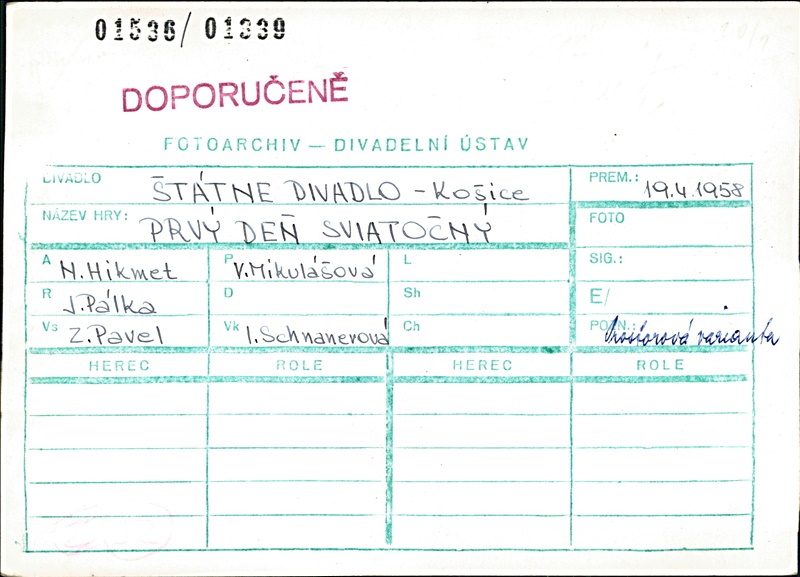 01536/ 01339
DOPORUČENĚ
FOTOARCHIV — DIVADELNÍ ÚSTAV
DIVADLO ŠTÁTNE DIVADLO - Košice PREM.: 19.4.1958
NÁZEV HRY: PRVÝ DEŇ SVIATOČNÝ FOTO
A N.Hikmet P V.Mikulášová L SIG.:
R J.Pálka D Sh E/
Vs Z.Pavel Vk I.Schnanerová Ch POZN.: varianta
HEREC ROLE HEREC ROLE